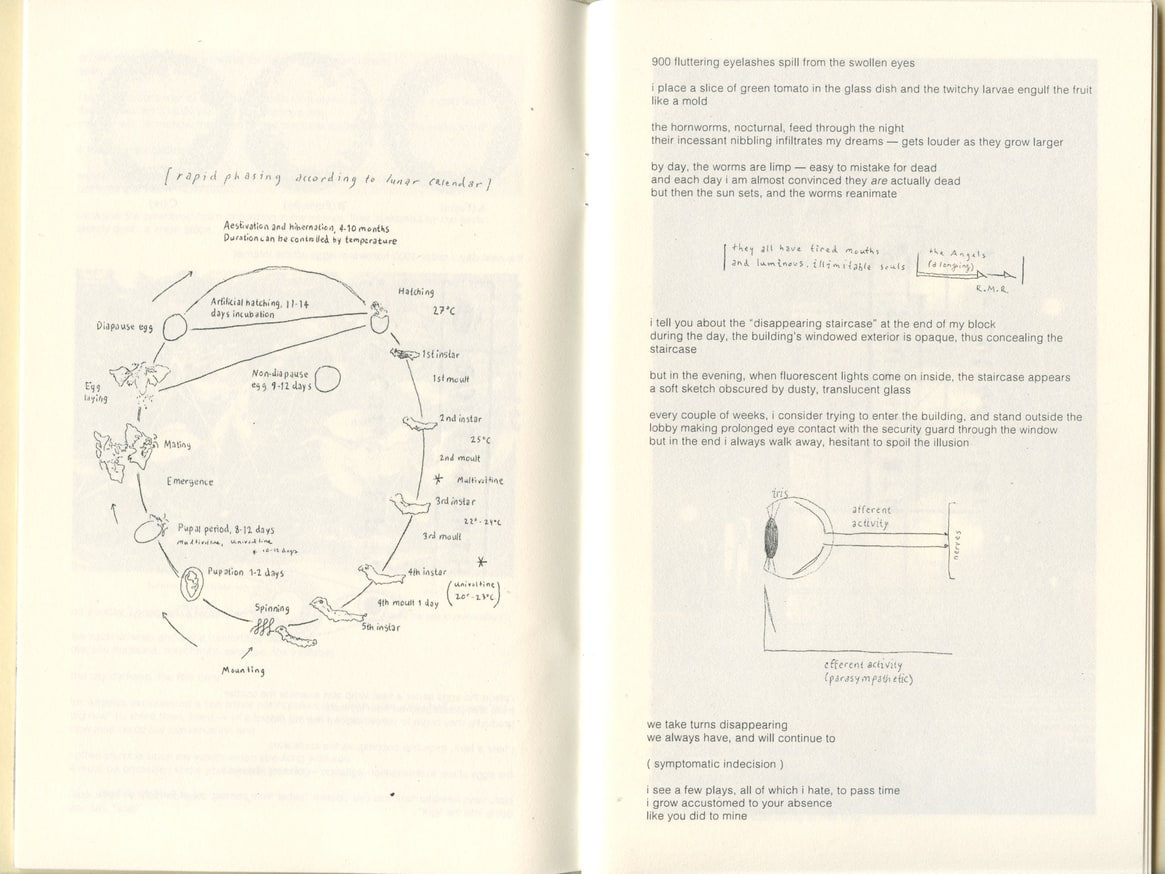 [rapid phasing according to lunar calendar]
Aestivation and hibernation, 4-10 months
Duration can be controlled by temperature
Artificial hatching, 11-14
days incubation
Hatching
27°C
Diapause egg
1st instar
Non-diapause
egg 9-12 days
1st moult
Egg
laying
2nd instar
25°C
Mating
2nd moult
* Multivoltine
Emergence
3rd instar
22°-24°C
Pupal period, 8-12 days
3rd moult
*
Pupation 1-2 days
4th instar
(univoltine
20°-23°C)
4th moult 1 day
Spinning
5th instar
Mounting
900 fluttering eyelashes spill from the swollen eyes
i place a slice of green tomato in the glass dish and the twitchy larvae engulf the fruit
like a mold
the hornworms, nocturnal, feed through the night
their incessant nibbling infiltrates my dreams — gets louder as they grow larger
by day, the worms are limp — easy to mistake for dead
and each day i am almost convinced they are actually dead
but then the sun sets, and the worms reanimate
they all have tired mouths
and luminous, illimitable souls
the Angels
(a longing)
R.M.R.
i tell you about the "disappearing staircase" at the end of my block
during the day, the building's windowed exterior is opaque, thus concealing the
staircase
but in the evening, when fluorescent lights come on inside, the staircase appears
a soft sketch obscured by dusty, translucent glass
every couple of weeks, i consider trying to enter the building, and stand outside the
lobby making prolonged eye contact with the security guard through the window
but in the end i always walk away, hesitant to spoil the illusion
iris
afferent
activity
nerves
efferent activity
(parasympathetic)
we take turns disappearing
we always have, and will continue to
( symptomatic indecision )
i see a few plays, all of which i hate, to pass time
i grow accustomed to your absence
like you did to mine